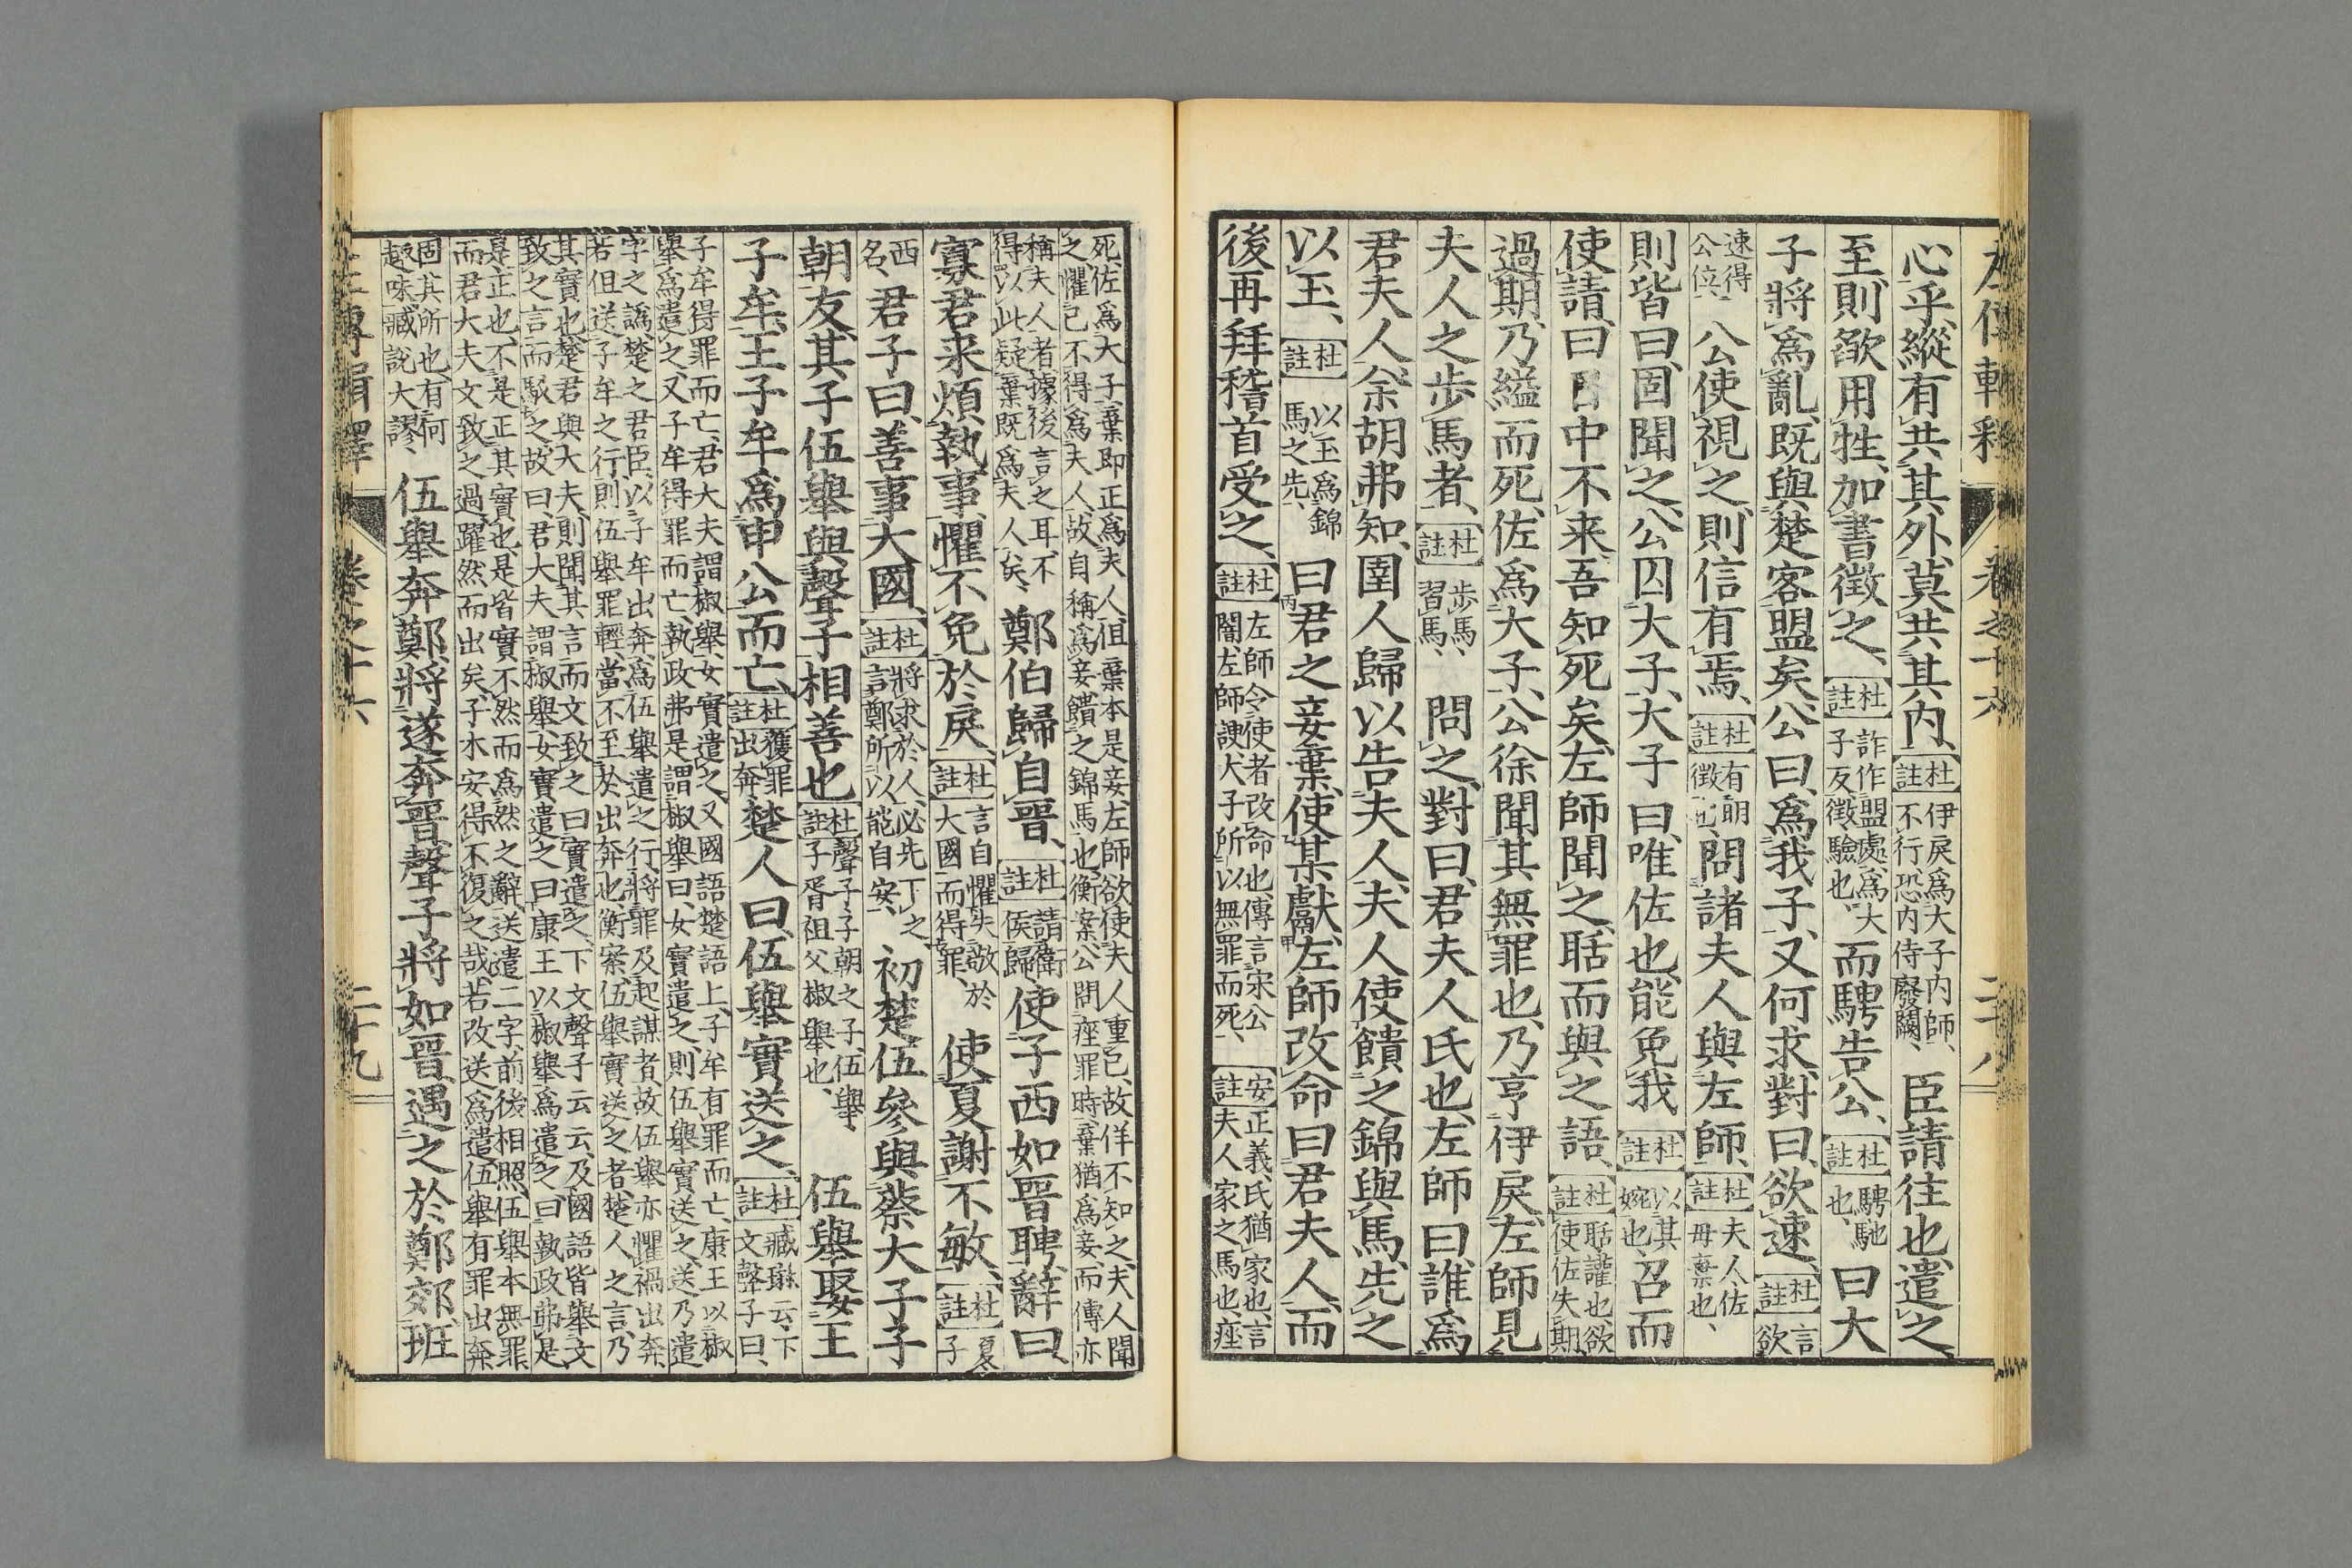 左傳輯釋 卷之十六 二十八
心乎、縱有共其外、莫共其内、杜註伊戾爲大子内師、不行、恐内侍廢闕、臣請往也、遣之、
至、則欿用牲、加書徵之、杜註詐作盟處、爲大子反徵驗也、而騁告公、杜註騁馳也、曰大
子將爲亂、既與楚客盟矣、公曰、爲我子、又何求、對曰、欲速、杜註言欲
速得公位、公使視之、則信有焉、杜註有明徵也、問諸夫人與左師、杜註夫人、佐母棄也、
則皆曰、固聞之、公囚大子、大子曰、唯佐也、能免我、杜註以其婉也、召而
使請、曰、日中不来、吾知死矣、左師聞之、聒而與之語、杜註聒讙也、欲使佐失期、
過期、乃縊而死、佐爲大子、公徐聞其無罪也、乃亨伊戾、左師見
夫人之歩馬者、杜註歩馬、習馬、問之、對曰、君夫人氏也、左師曰、誰爲
君夫人、余胡弗知、圉人歸以告夫人、夫人使饋之錦與馬、先之
以玉、杜註以玉爲錦馬之先、曰君之妾棄、使某獻、左師改命曰君夫人、而
後再拜稽首受之、杜註左師令使者改命也、傳言宋公闇、左師諛、大子所以無罪而死、安註正義、氏猶家也、言夫人家之馬也、痤
死佐爲大子、棄即正爲夫人、但棄本是妾、左師欲使夫人重己、故佯不知之、夫人聞之、懼己不得爲夫人、故自稱爲妾、饋之錦馬也、衡案、公問痤罪時、棄猶爲妾、而傳亦
稱夫人者、據後言之耳、不得以此疑棄既爲夫人矣、鄭伯歸自晉、杜註請衛侯歸、使子西如晉聘、辭曰、
寡君来煩執事、懼不免於戾、杜註言自懼失敬於大國而得罪、使夏謝不敏、杜註夏、子
西名、君子曰、善事大國、杜註將求於人、必先下之、言鄭所以能自安、初楚伍參與蔡大子
朝友、其子伍舉與聲子相善也、杜註聲子、子朝之子、伍舉、子胥祖父椒舉也、伍舉娶王
子牟、王子牟爲申公而亡、杜註獲罪出奔、楚人曰、伍舉實送之、杜註臧琳云、下文聲子曰、
子牟得罪而亡、君大夫謂椒舉、女實遣之、又國語楚語上、子牟有罪而亡、康王以椒舉爲遣之、又子牟得罪而亡、執政弗是、謂椒舉曰、女實遣之、則伍舉實送之、送乃遣
字之譌、楚之君臣、以子牟出奔、爲伍舉遣之行、將罪及起謀者、故伍舉亦懼禍出奔、若但送子牟之行、則伍舉罪輕、當不至於出奔也、衡案、伍舉實送之者、楚人之言、乃
其實也、楚君與大夫、則聞其言而文致之曰、實遣之、下文聲子云云、及國語皆舉文致之言而駁之、故曰、君大夫謂椒舉、女實遣之、曰、康王以椒舉爲遣之、曰、執政弗是、
是正也、不是正其實也、是皆實不然而爲然之辭、送遣二字、前後相照、伍舉本無罪、而君大夫文致之過、躍然而出矣、子木安得不復之哉、若改送爲遣、伍舉有罪出奔、
固其所也、有何趣味、臧説大謬、伍舉奔鄭、將遂奔晉、聲子將如晉、遇之於鄭郊、班
左傳輯釋 卷之十六 二十九